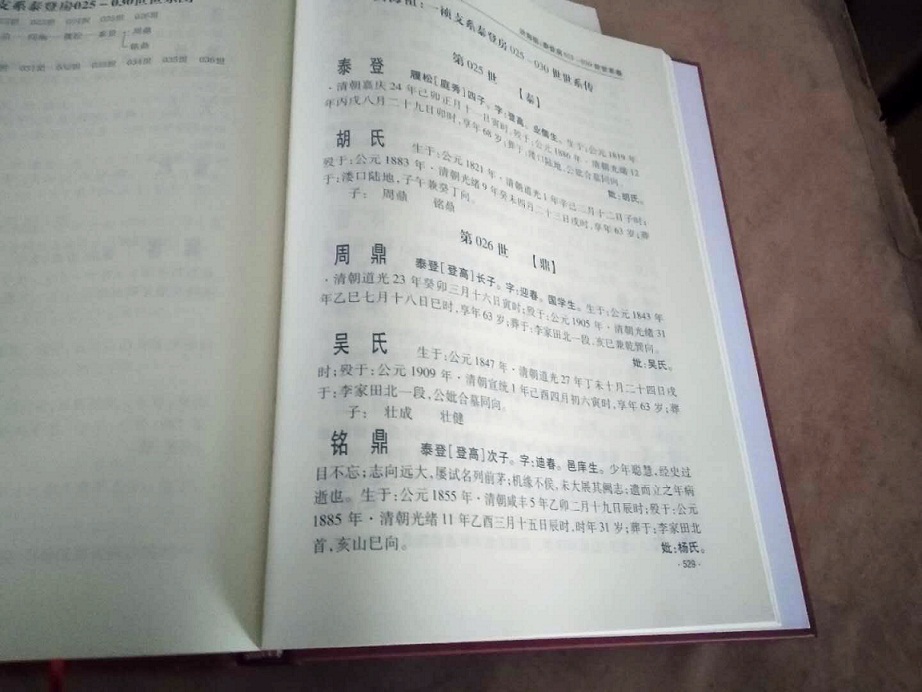 支系泰登房025－030世世系图
025世 026世 027世 028世 029世 030世
一祯支系泰登房025－030世世系传
第025世 【泰】
泰登 履松[庭秀]四子。字:登高。业儒生。生于:公元1819年
·清朝嘉庆24年己卯正月十一日寅时;殁于:公元1886年·清朝光绪12
年丙戌八月二十九日卯时,享年68岁;葬于:溇口陆地,公妣合墓同向。
妣:胡氏。
胡氏 生于:公元1821年·清朝道光1年辛巳二月十二日子时;
殁于:公元1883年·清朝光绪9年癸未四月二十三日戌时,享年63岁;葬
于:溇口陆地,子午兼癸丁向。
子: 周鼎 铭鼎
第026世 【鼎】
周鼎 泰登[登高]长子。字:迎春。国学生。生于:公元1843年
·清朝道光23年癸卯三月十六日寅时;殁于:公元1905年·清朝光绪31
年乙巳七月十八日巳时,享年63岁;葬于:李家田北一段,亥巳兼乾巽向。
妣:吴氏。
吴氏 生于:公元1847年·清朝道光27年丁未十月二十四日戌
时;殁于:公元1909年·清朝宣统1年己酉四月初六寅时,享年63岁;葬
于:李家田北一段,公妣合墓同向。
子: 壮成 壮健
铭鼎 泰登[登高]次子。字:迪春。邑庠生。少年聪慧,经史过
目不忘;志向远大,屡试名列前茅;机缘不俟,未大展其阙志;遗而立之年病
逝也。生于:公元1855年·清朝咸丰5年乙卯二月十九日辰时;殁于:公元
1885年·清朝光绪11年乙酉三月十五日辰时,时年31岁;葬于:李家田北
首,亥山巳向。 妣:杨氏。
·529·